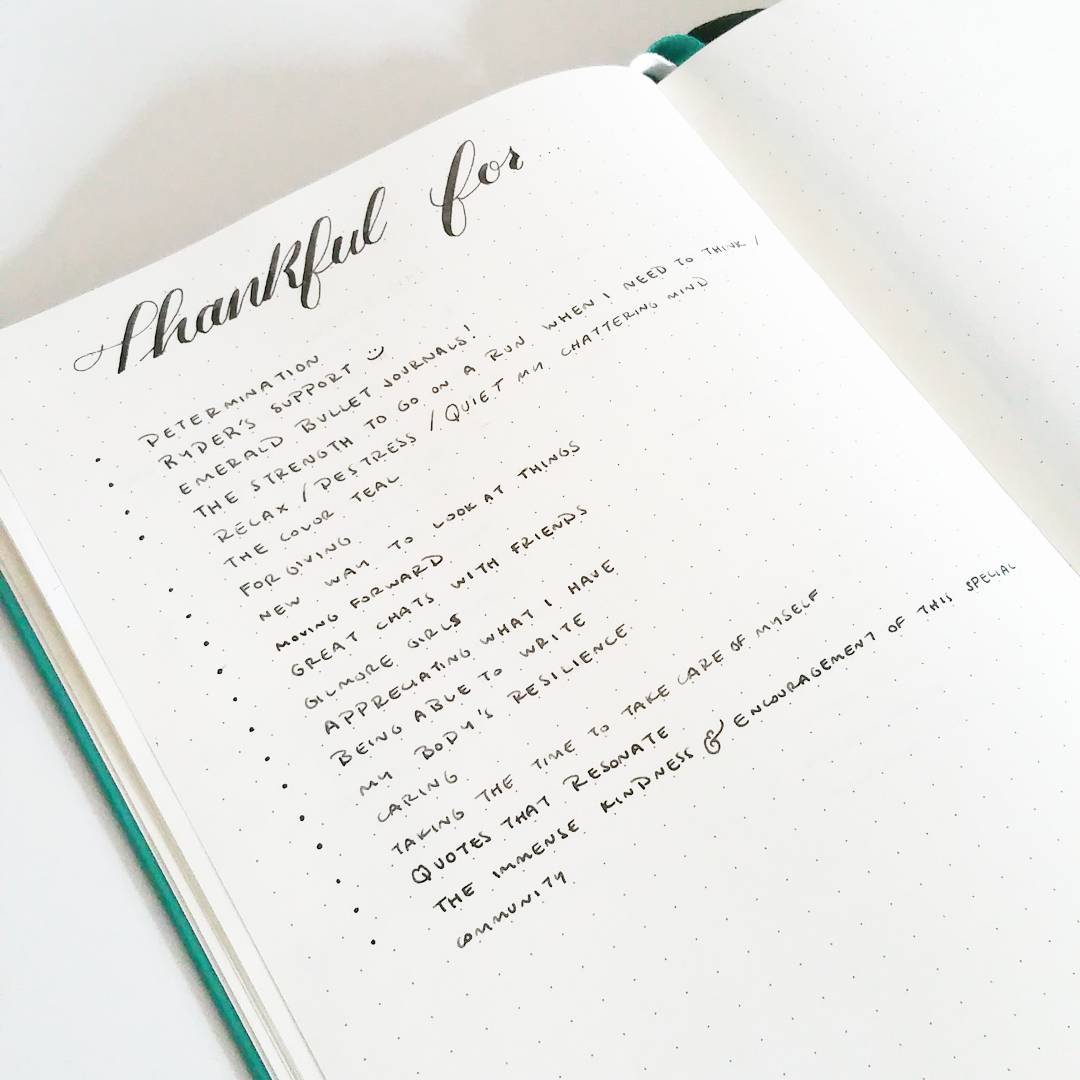 thankful for ...
• DETERMINATION
• RYDER'S SUPPORT :)
• EMERALD BULLET JOURNALS!
• THE STRENGTH TO GO ON A RUN WHEN I NEED TO THINK /
RELAX / DESTRESS / QUIET MY CHATTERING MIND
• THE COLOR TEAL
• FORGIVING
• NEW WAY TO LOOK AT THINGS
• MOVING FORWARD
• GREAT CHATS WITH FRIENDS
• GILMORE GIRLS
• APPRECIATING WHAT I HAVE
• BEING ABLE TO WRITE
• MY BODY'S RESILIENCE
• CARING
• TAKING THE TIME TO TAKE CARE OF MYSELF
• QUOTES THAT RESONATE
• THE IMMENSE KINDNESS & ENCOURAGEMENT OF THIS SPECIAL
COMMUNITY